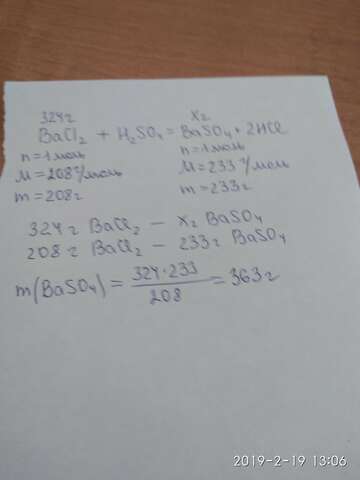 324г xг
BaCl₂ + H₂SO₄ = BaSO₄ + 2HCl
n = 1 моль n = 1 моль
M = 208 г/моль M = 233 г/моль
m = 208г m = 233г
324 г BaCl₂ — xг BaSO₄
208 г BaCl₂ — 233г BaSO₄
m(BaSO₄) = 324·233/208 = 363г
2019-2-19 13:06